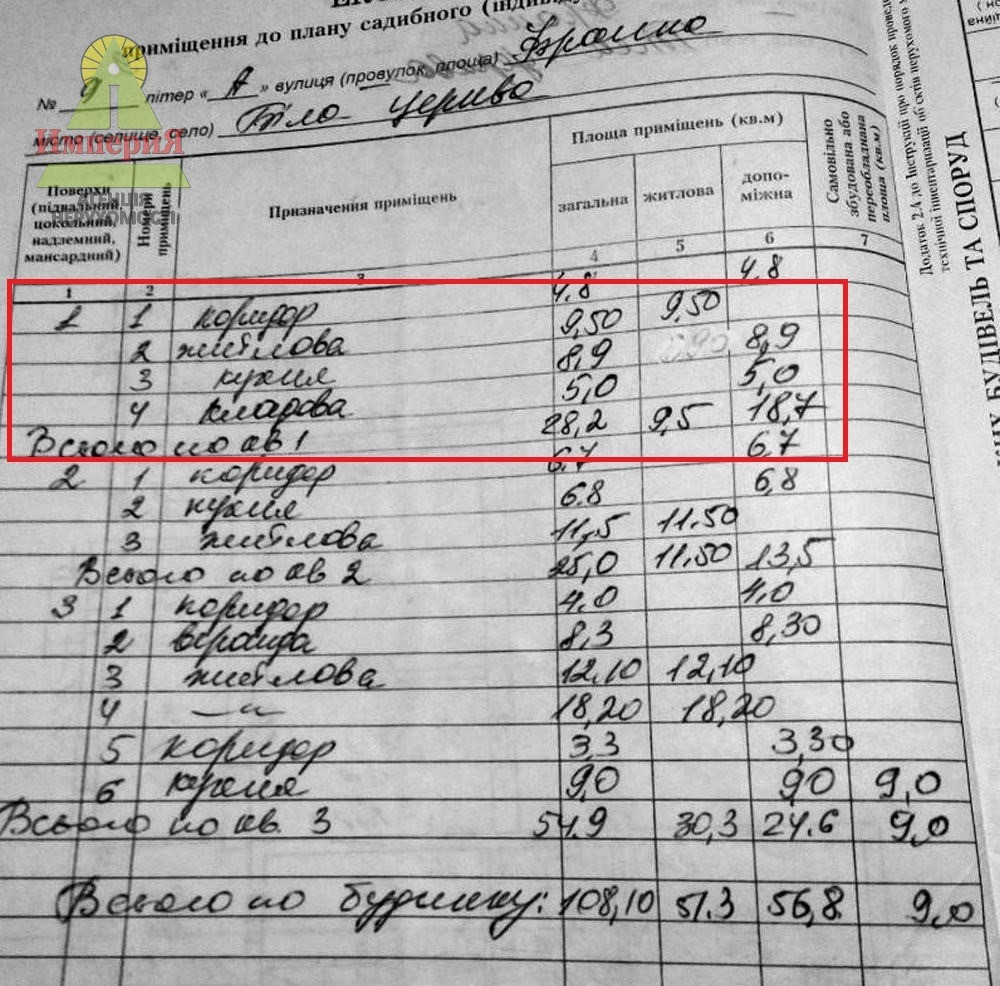 приміщення до плану садибного (індиві
№ 9 літер « А » вулиця (провулок, площа) Франка
місто (селище, село) Біла Церква
ИмпериЯ
АГЕНЦІЯ
НЕРУХОМОСТІ
Поверхи (підвальний, цокольний, надземний, мансардний)
Номери приміщень
Призначення приміщень
Площа приміщень (кв.м)
загальна житлова допо-
міжна
Самовільно збудована або переобладнана площа (кв.м)
1 2 3 4 5 6 7
1 1 коридор 4.8 4.8
2 житлова 9,50 9,50
3 кухня 8,9 8,9
4 кладова 5,0 5,0
Всього по кв 1 28,2 9,5 18,7
2 1 коридор 6,7 6,7
2 кухня 6.8 6,8
3 житлова 11,5 11.50
Всього по кв 2 25,0 11,50 13,5
3 1 коридор 4.0 4.0
2 веранда 8,3 8,30
3 житлова 12,10 12,10
4 —"— 18,20 18,20
5 коридор 3,3 3,30
6 кухня 9,0 9,0 9,0
Всього по кв. 3 54.9 30,3 24.6 9,0
Всього по будинку: 108,10 51.3 56,8 9,0
Додаток 2.4 до Інструкції про порядок проведе
технічної інвентаризації об'єктів нерухомого
БУДІВЕЛЬ ТА СПОРУД